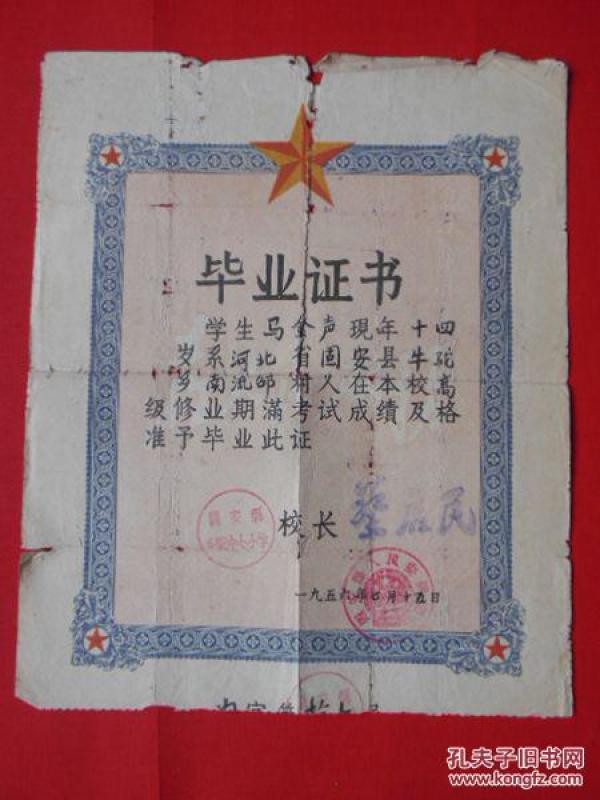 毕业证书
学生马金声现年十四
岁系河北省固安县牛驼
乡南流邵村人在本校高
级修业期满考试成绩及格
准予毕业此证
校长
一九五六年七月十五日
孔夫子旧书网
www.kongfz.com